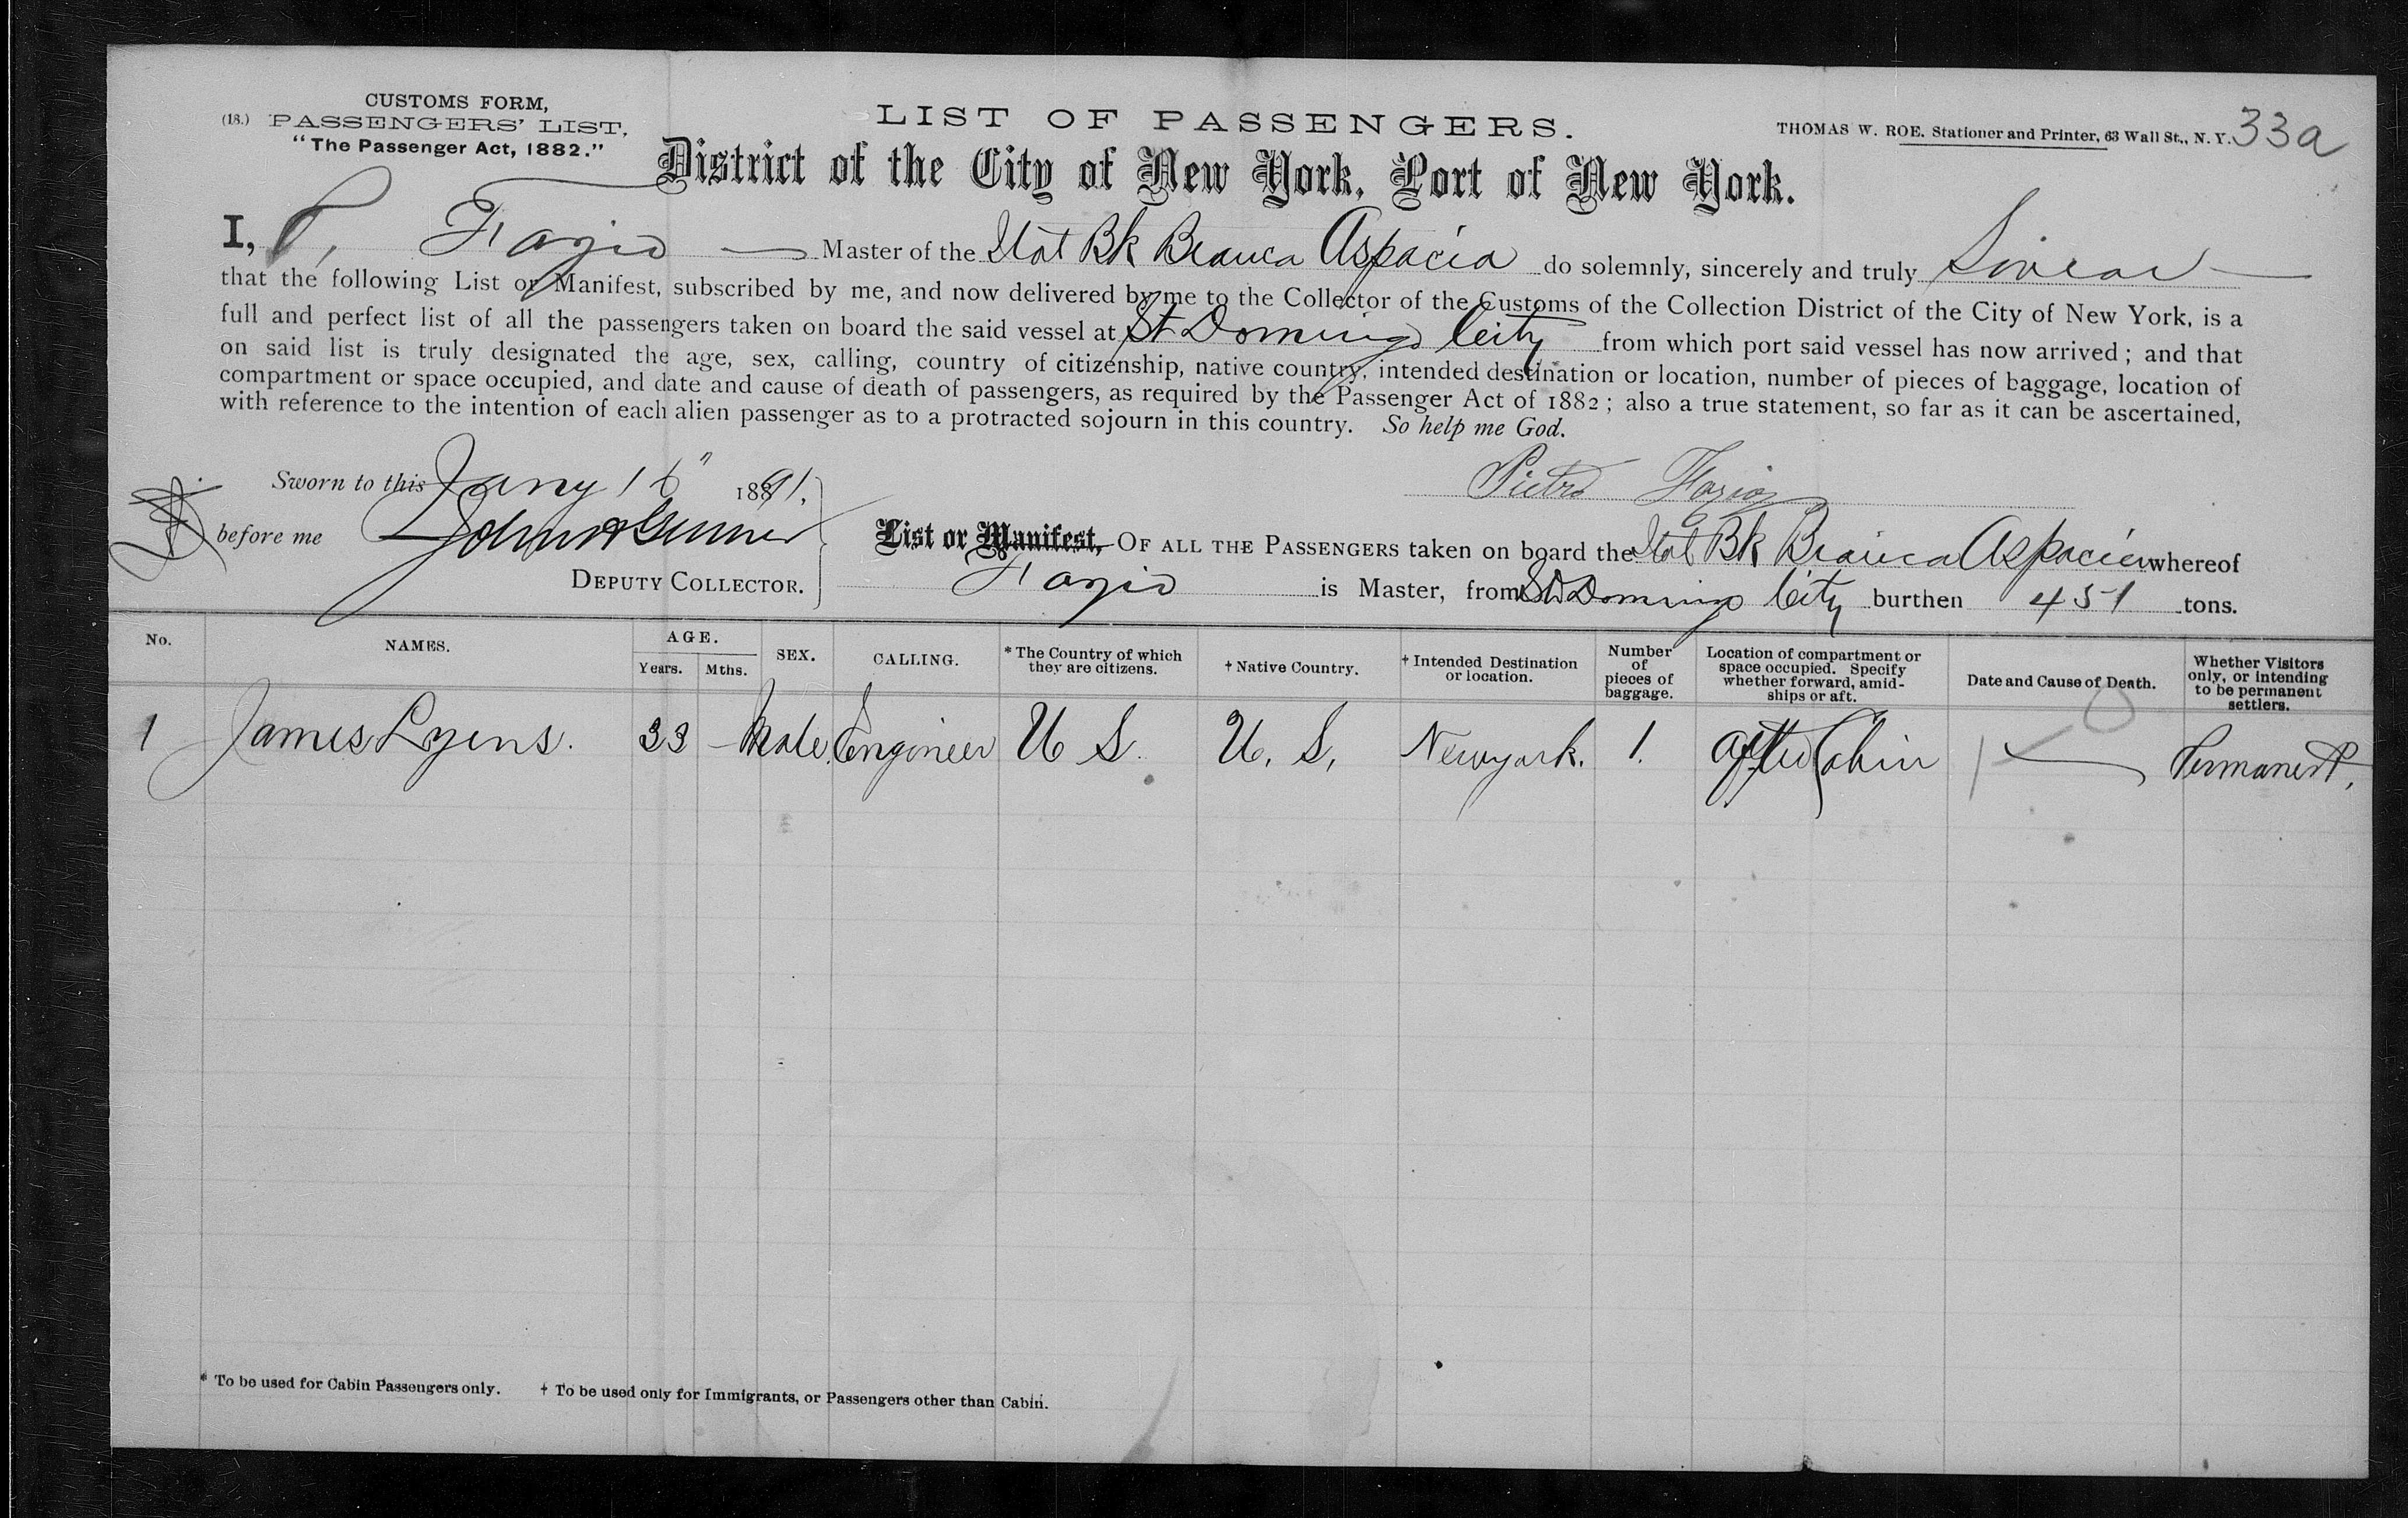 CUSTOMS FORM,
(18.) PASSENGERS' LIST,
"The Passenger Act, 1882."
LIST OF PASSENGERS.
THOMAS W. ROE. Stationer and Printer, 63 Wall St., N. Y. 33a
District of the City of New York, Port of New York.
I, P, Fazio Master of the Ital Bk Bianca Aspacia do solemnly, sincerely and truly Swear
that the following List or Manifest, subscribed by me, and now delivered by me to the Collector of the Customs of the Collection District of the City of New York, is a
full and perfect list of all the passengers taken on board the said vessel at St Domingo City from which port said vessel has now arrived; and that
on said list is truly designated the age, sex, calling, country of citizenship, native country, intended destination or location, number of pieces of baggage, location of
compartment or space occupied, and date and cause of death of passengers, as required by the Passenger Act of 1882; also a true statement, so far as it can be ascertained,
with reference to the intention of each alien passenger as to a protracted sojourn in this country. So help me God.
Sworn to this Jany 16" 1891.
Pietro Fazio
before me
DEPUTY COLLECTOR.
List or Manifest, OF ALL THE PASSENGERS taken on board the Ital Bk Bianca Aspacia whereof
Fazio is Master, from St Domingo City burthen 451 tons.
No. NAMES. AGE. Years. Mths. SEX. CALLING. * The Country of which they are citizens. † Native Country. † Intended Destination or location. Number of pieces of baggage. Location of compartment or space occupied. Specify whether forward, amid-ships or aft. Date and Cause of Death. Whether Visitors only, or intending to be permanent settlers.
1 James Lyens. 33 – Male. Engineer U S. U. S, Newyork. 1. after Cabin Permanent,
* To be used for Cabin Passengers only. † To be used only for Immigrants, or Passengers other than Cabin.